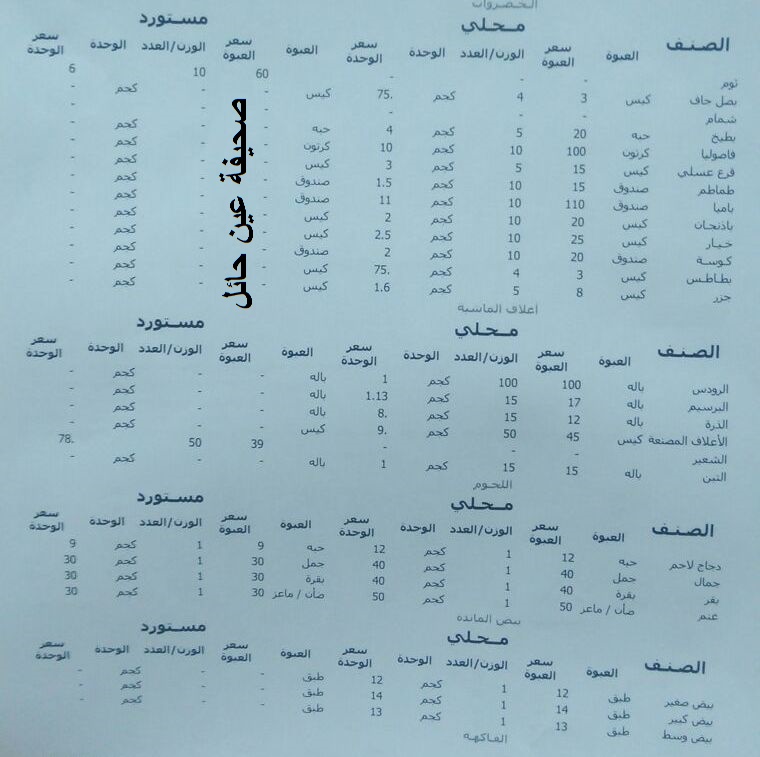 الخضروات
محلي مستورد
الصنف العبوة سعر العبوة الوزن/العدد الوحدة سعر الوحدة العبوة سعر العبوة الوزن/العدد الوحدة سعر الوحدة
ثوم - - - 60 10 6
بصل جاف كيس 3 4 كجم .75 كيس - - كجم -
شمام - - - - - -
بطيخ حبه 20 5 كجم 4 حبه - - كجم -
فاصوليا كرتون 100 10 كجم 10 كرتون - - كجم -
قرع عسلي كيس 15 5 كجم 3 كيس - - كجم -
طماطم صندوق 15 10 كجم 1.5 صندوق - - كجم -
باميا صندوق 110 10 كجم 11 صندوق - - كجم -
باذنجان كيس 20 10 كجم 2 كيس - - كجم -
خيار كيس 25 10 كجم 2.5 كيس - - كجم -
كوسة صندوق 20 10 كجم 2 صندوق - - كجم -
بطاطس كيس 3 4 كجم .75 كيس - - كجم -
جزر كيس 8 5 كجم 1.6 كيس - - كجم -
صحيفة عين حائل
اعلاف الماشية
محلي مستورد
الصنف العبوة سعر العبوة الوزن/العدد الوحدة سعر الوحدة العبوة سعر العبوة الوزن/العدد الوحدة سعر الوحدة
الرودس باله 100 100 كجم 1 باله - - كجم -
البرسيم باله 17 15 كجم 1.13 باله - - كجم -
الذرة باله 12 15 كجم .8 باله - - كجم -
الأعلاف المصنعة كيس 45 50 كجم .9 كيس - - كجم -
الشعير - - - 39 50 .78
التبن باله 15 15 كجم 1 باله - - كجم -
اللحوم
محلي مستورد
الصنف العبوة سعر العبوة الوزن/العدد الوحدة سعر الوحدة العبوة سعر العبوة الوزن/العدد الوحدة سعر الوحدة
دجاج لاحم حبه 12 1 كجم 12 حبه 9 1 كجم 9
جمال جمل 40 1 كجم 40 جمل 30 1 كجم 30
بقر بقرة 40 1 كجم 40 بقرة 30 1 كجم 30
غنم ضأن / ماعز 50 1 كجم 50 ضأن / ماعز 30 1 كجم 30
بيض المائده
محلي مستورد
الصنف العبوة سعر العبوة الوزن/العدد الوحدة سعر الوحدة العبوة سعر العبوة الوزن/العدد الوحدة سعر الوحدة
بيض صغير طبق 12 1 كجم 12 طبق - - كجم -
بيض كبير طبق 14 1 كجم 14 طبق - - كجم -
بيض وسط طبق 13 1 كجم 13 طبق - - كجم -
الفاكهه